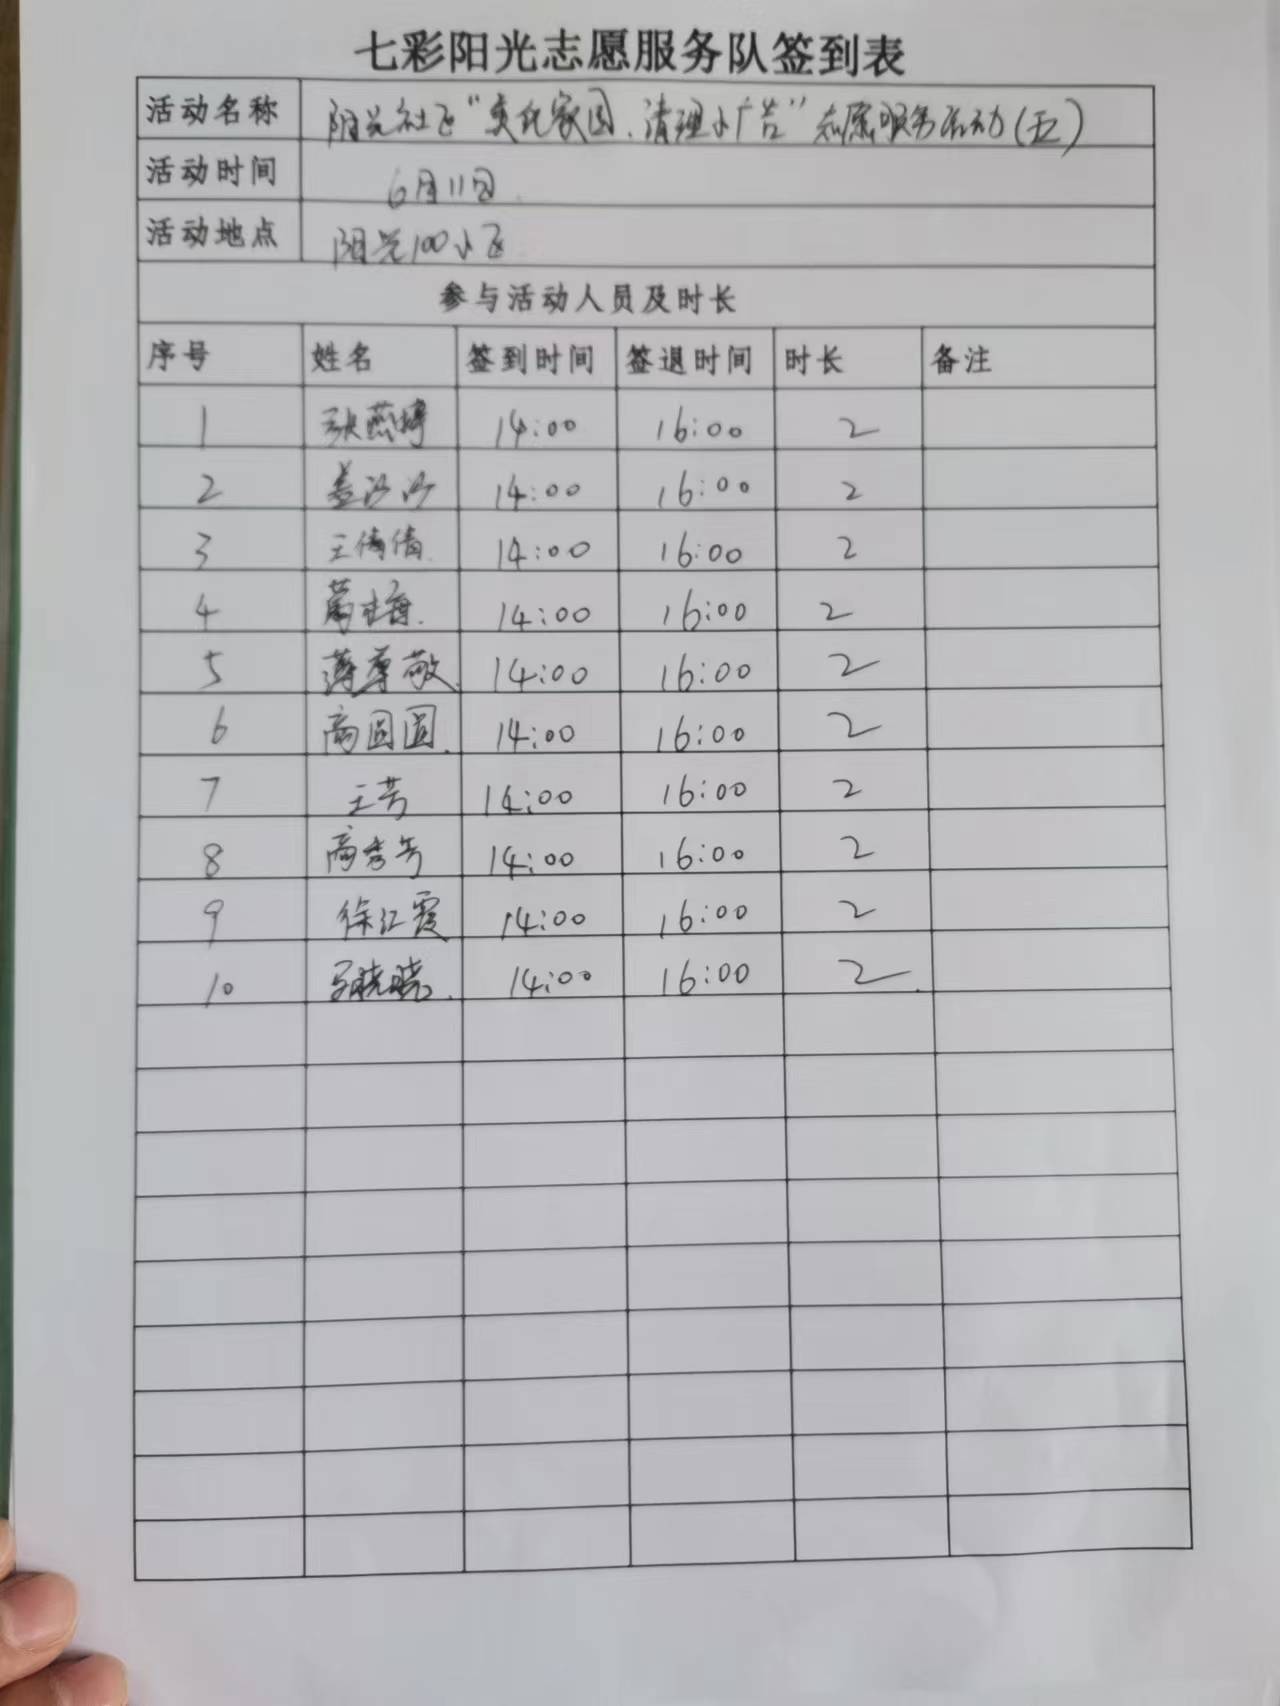 七彩阳光志愿服务队签到表
活动名称 阳光社区“美化家园、清理小广告”志愿服务活动(五)
活动时间 6月11日
活动地点 阳光100小区
参与活动人员及时长
序号 姓名 签到时间 签退时间 时长 备注
1 张燕婷 14:00 16:00 2
2 姜沙沙 14:00 16:00 2
3 王倩倩 14:00 16:00 2
4 14:00 16:00 2
5 薄尊敬 14:00 16:00 2
6 商圆圆 14:00 16:00 2
7 王芳 14:00 16:00 2
8 商秀芳 14:00 16:00 2
9 徐红霞 14:00 16:00 2
10 14:00 16:00 2